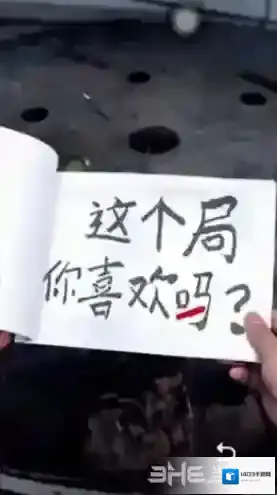 这个局
你喜欢吗?
3HE
1403手游网